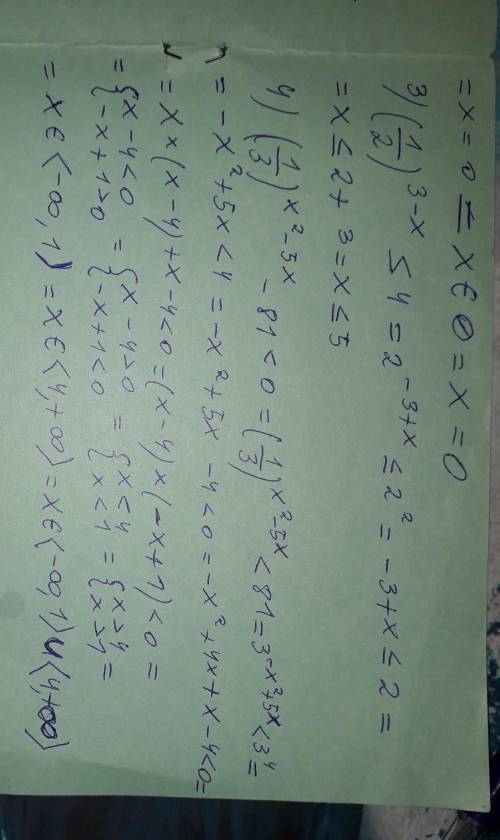 = x = 0 = x ∈ 0 = x = 0
3) (1/2)^3-x ≤ 4 = 2^-3+x ≤ 2^2 = -3+x ≤ 2 =
= x ≤ 2 + 3 = x ≤ 5
4) (1/3)^x^2-5x - 81 < 0 = (1/3)^x^2-5x < 81 = 3^-x^2+5x < 3^4 =
= -x^2 + 5x < 4 = -x^2 + 5x - 4 < 0 = -x^2 + 4x + x - 4 < 0 =
= x × (x - 4) + x - 4 < 0 = (x - 4) × (-x + 1) < 0 =
= { x - 4 < 0 = { x - 4 > 0 = { x < 4 = { x > 4 =
{ -x + 1 > 0 { -x + 1 < 0 { x < 1 { x > 1
= x ∈ <-∞, 1> = x ∈ <4, +∞> = x ∈ <-∞, 1> u <4, +∞>